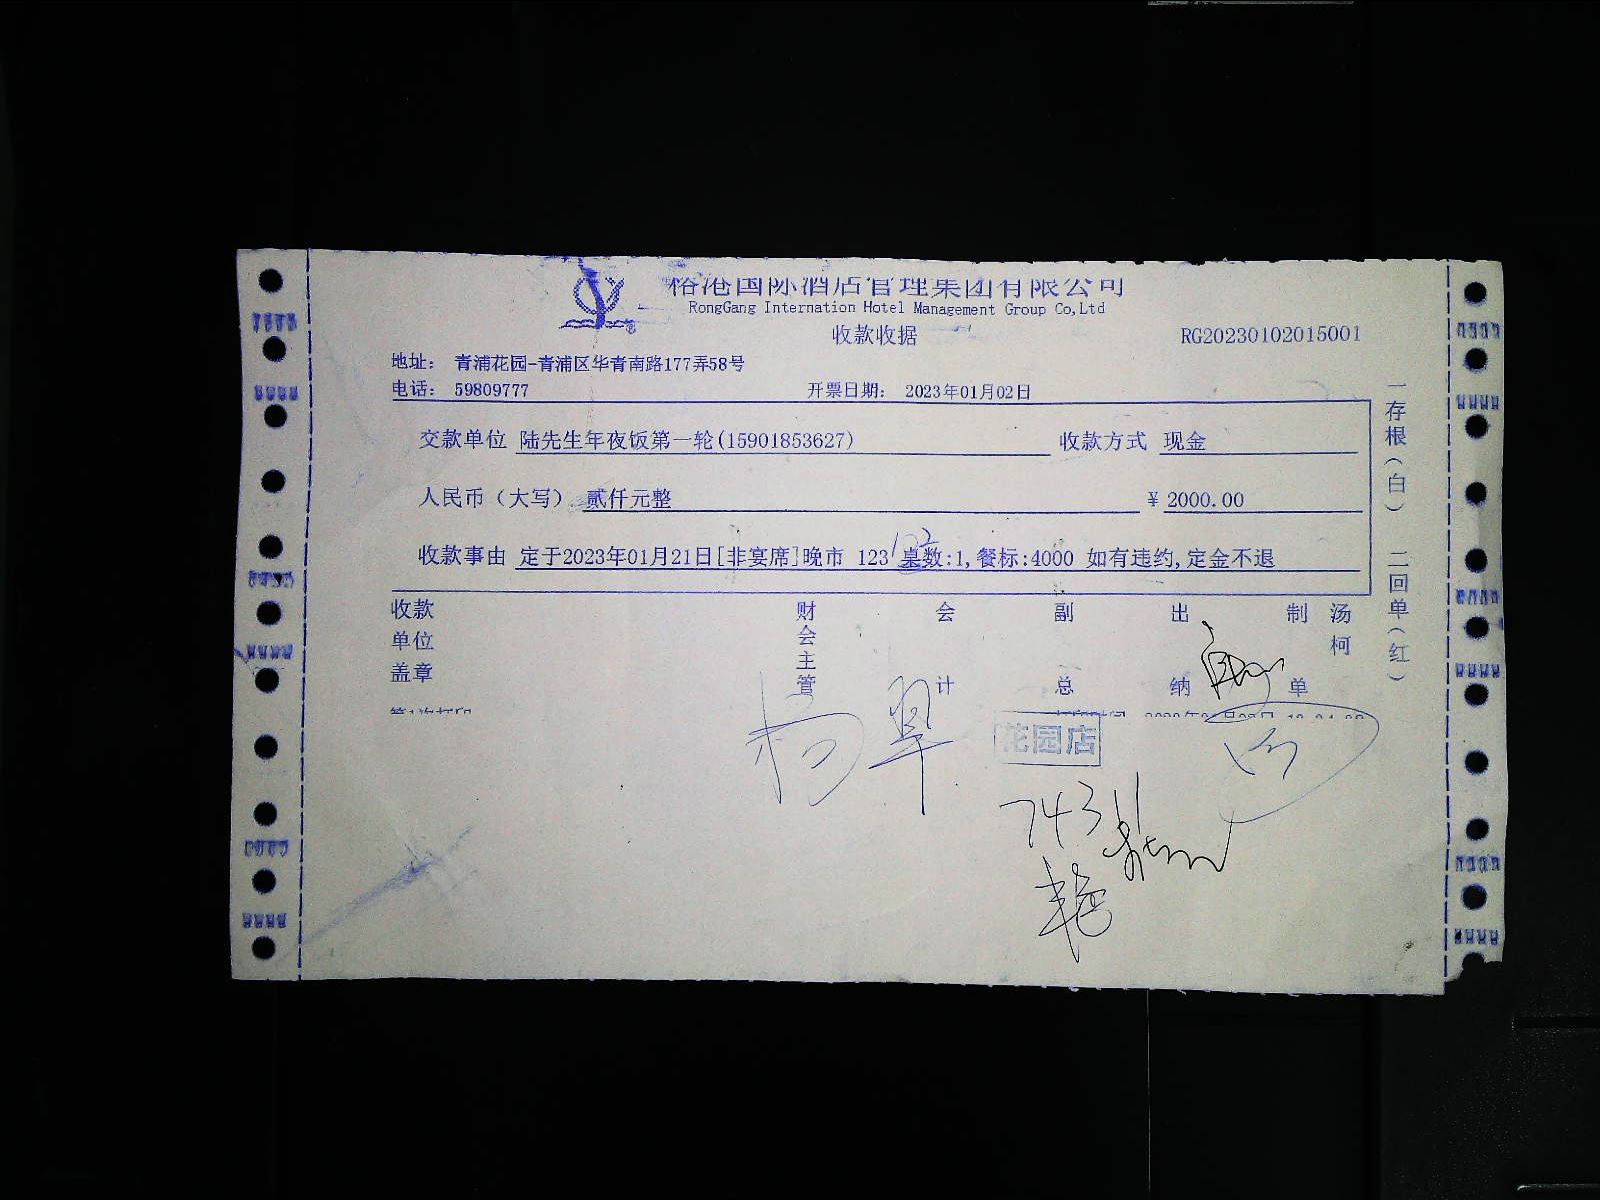 裕港国际酒店管理集团有限公司
RongGang Internation Hotel Management Group Co,Ltd
收款收据
RG20230102015001
地址： 青浦花园-青浦区华青南路177弄58号
电话： 59809777
开票日期： 2023年01月02日
交款单位 陆先生年夜饭第一轮(15901853627)
收款方式 现金
人民币（大写） 贰仟元整
¥ 2000.00
收款事由 定于2023年01月21日[非宴席]晚市 123 桌数:1,餐标:4000 如有违约,定金不退
收款单位盖章
财会主管
会计
副总
出纳
制单
汤柯
一存根（白） 二回单（红）
花园店
743